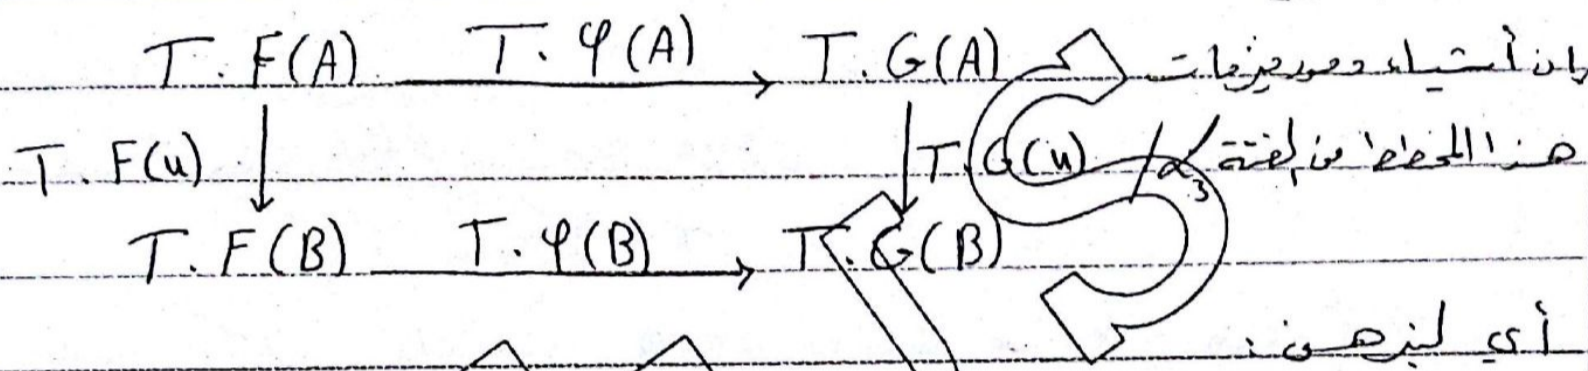 T.F(A) T.φ(A) T.G(A) وإن أشياء ومورفيزمات
T.F(u) T.G(u) هذا المخطط من الفئة α₃
T.F(B) T.φ(B) T.G(B)
أي لنبرهن: